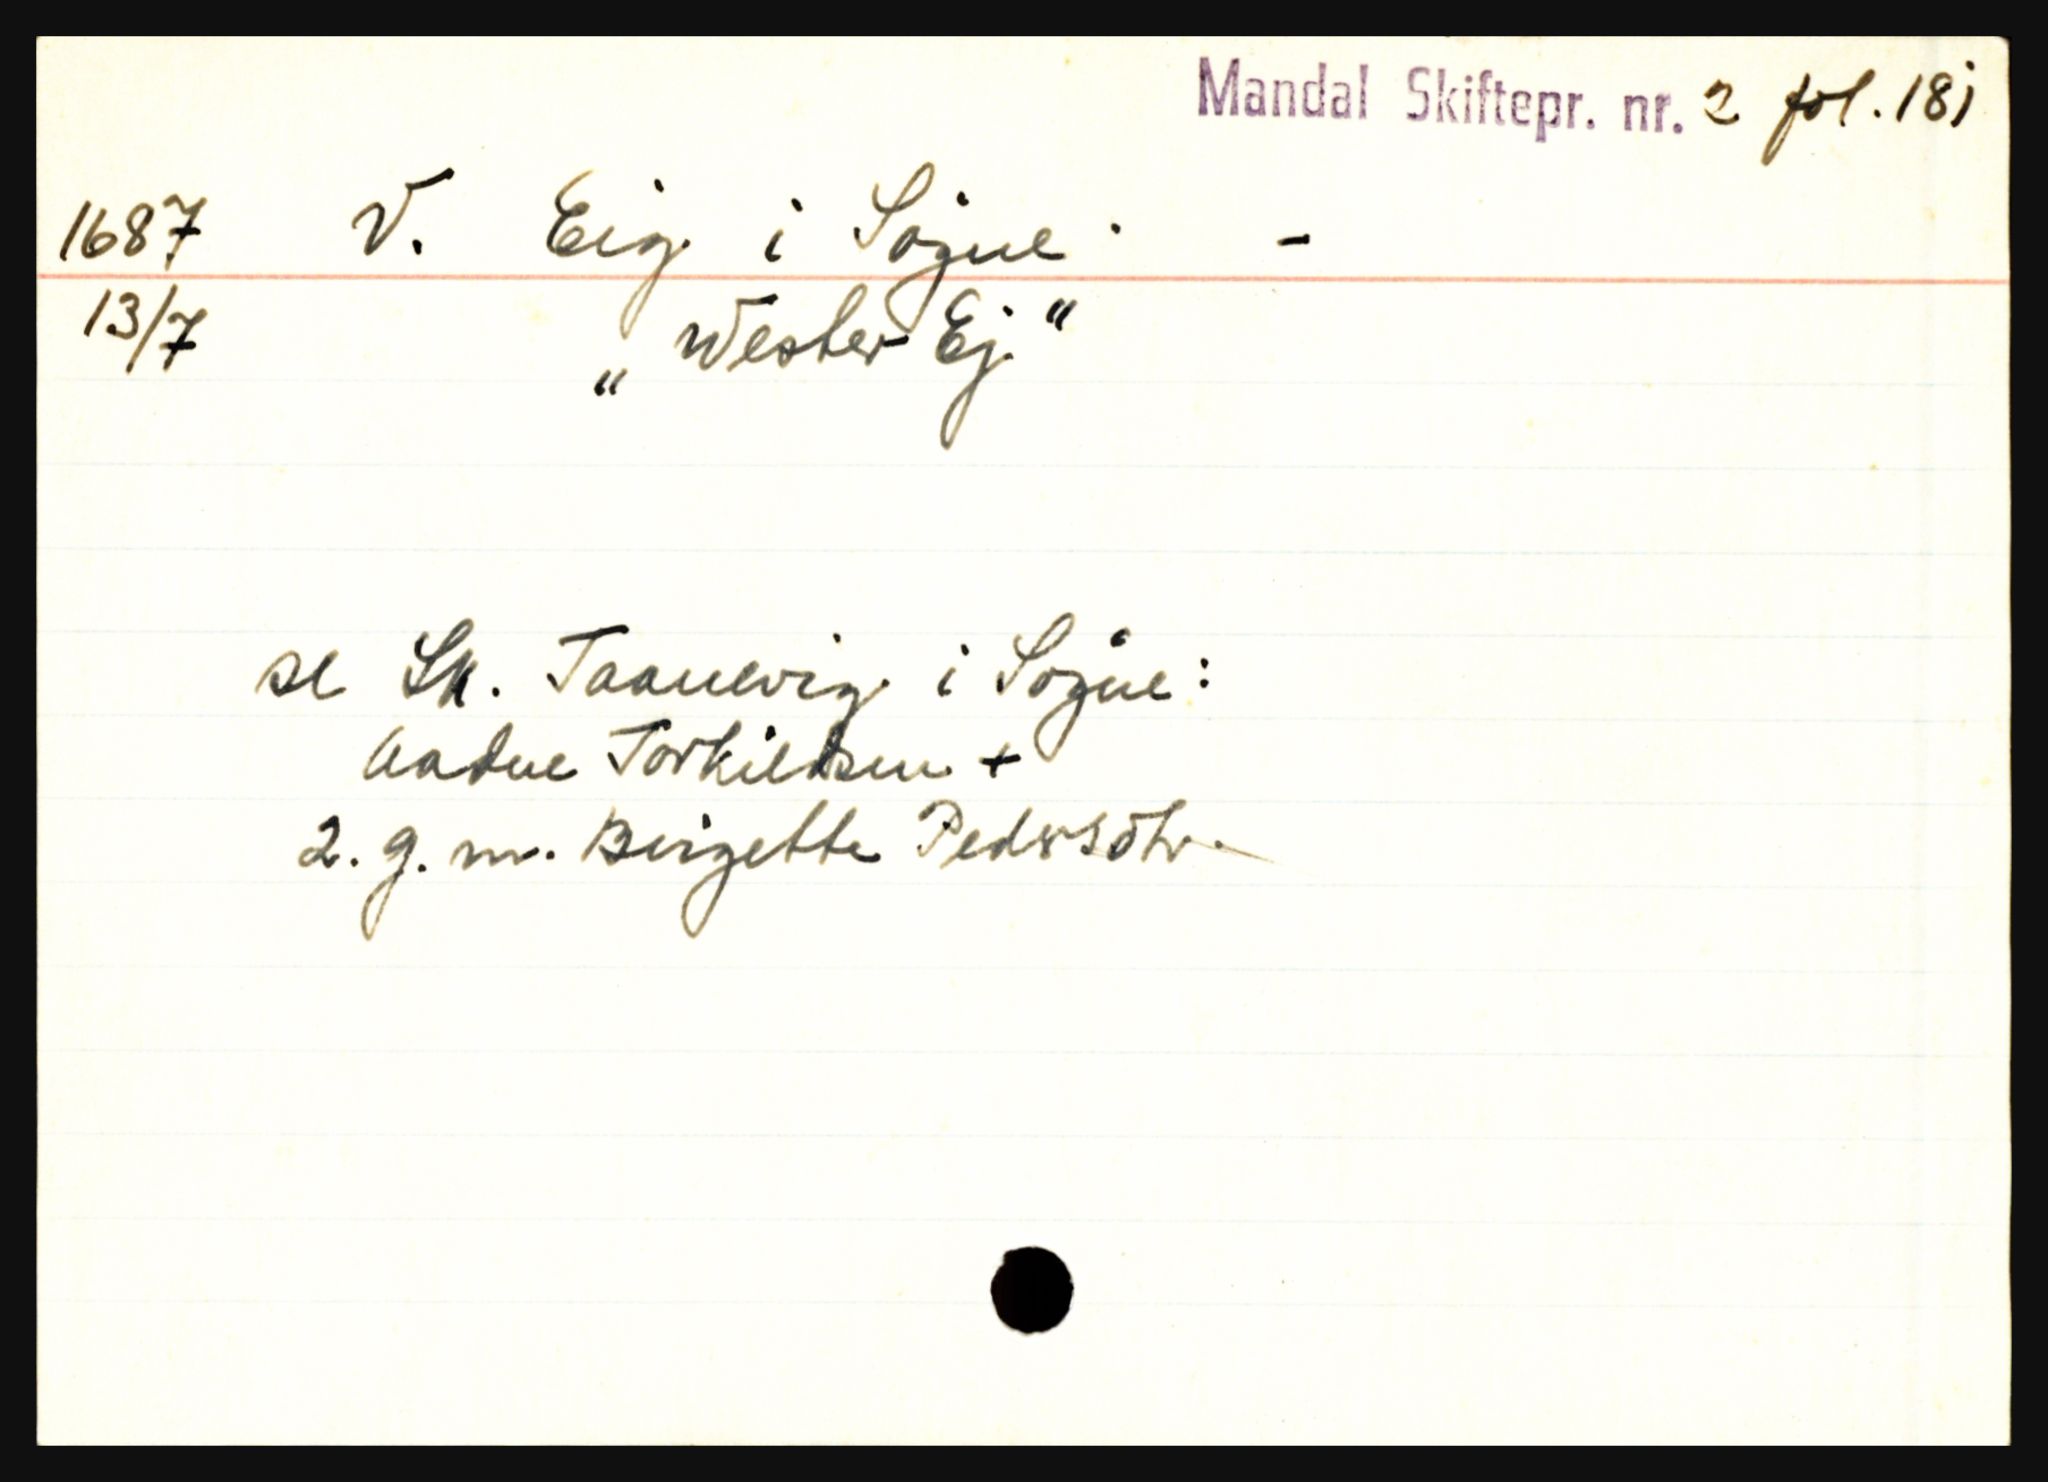 Mandal Skiftepr. nr. 2 fol. 18j
1687 V. Eig i Søgne -
13/7 „Wester Ej."
se Sk. Taanevig i Søgne:
Aadne Torkildsen +
2. g. m. Birgette Pedersdtr.